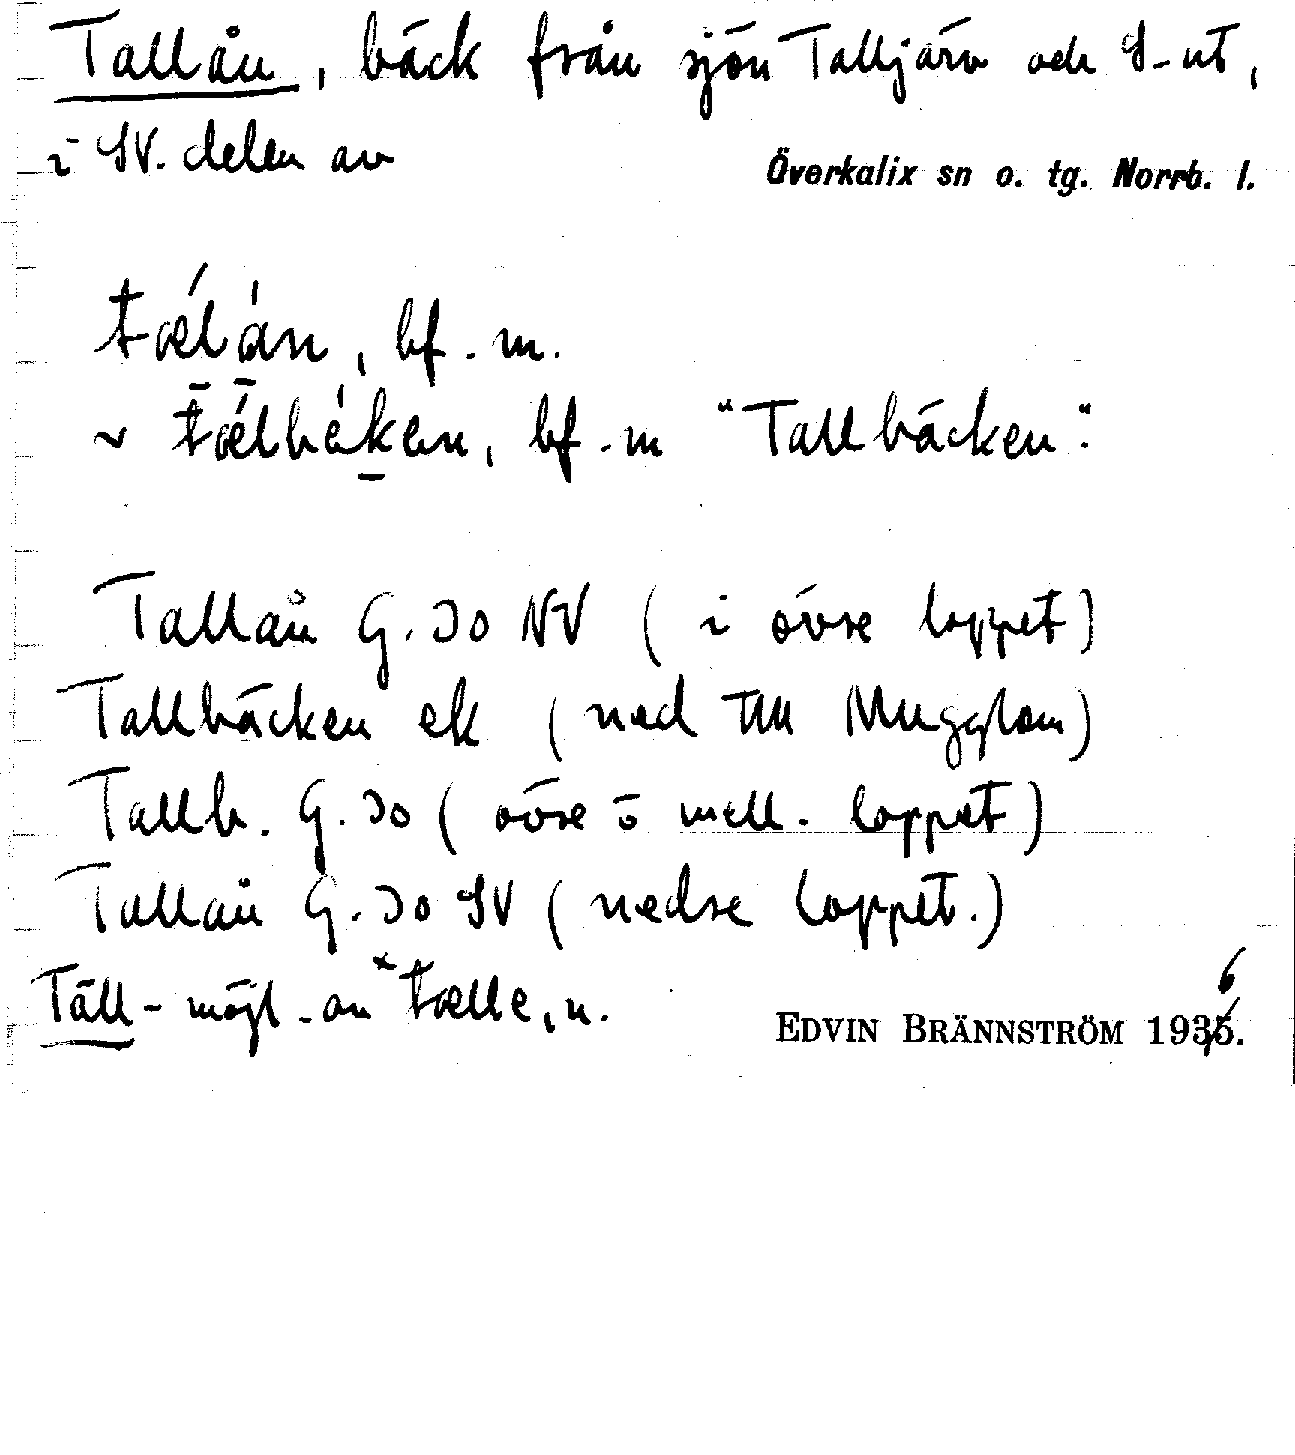 Tallån, bäck från sjön Talljärv och S-ut,
i SV. delen av Överkalix sn o. tg. Norrb. l.
tælån, bf. m.
~ tælbéken, bf. m "Tallbäcken".
Tallån G. 30 NV (i övre loppet)
Tallbäcken ek (ned till Mugglom)
Tallb. G. 30 (övre o mell. loppet)
Tallån G. 30 SV (nedre loppet.)
Täll- möjl. av *tælle, n.
EDVIN BRÄNNSTRÖM 1936.